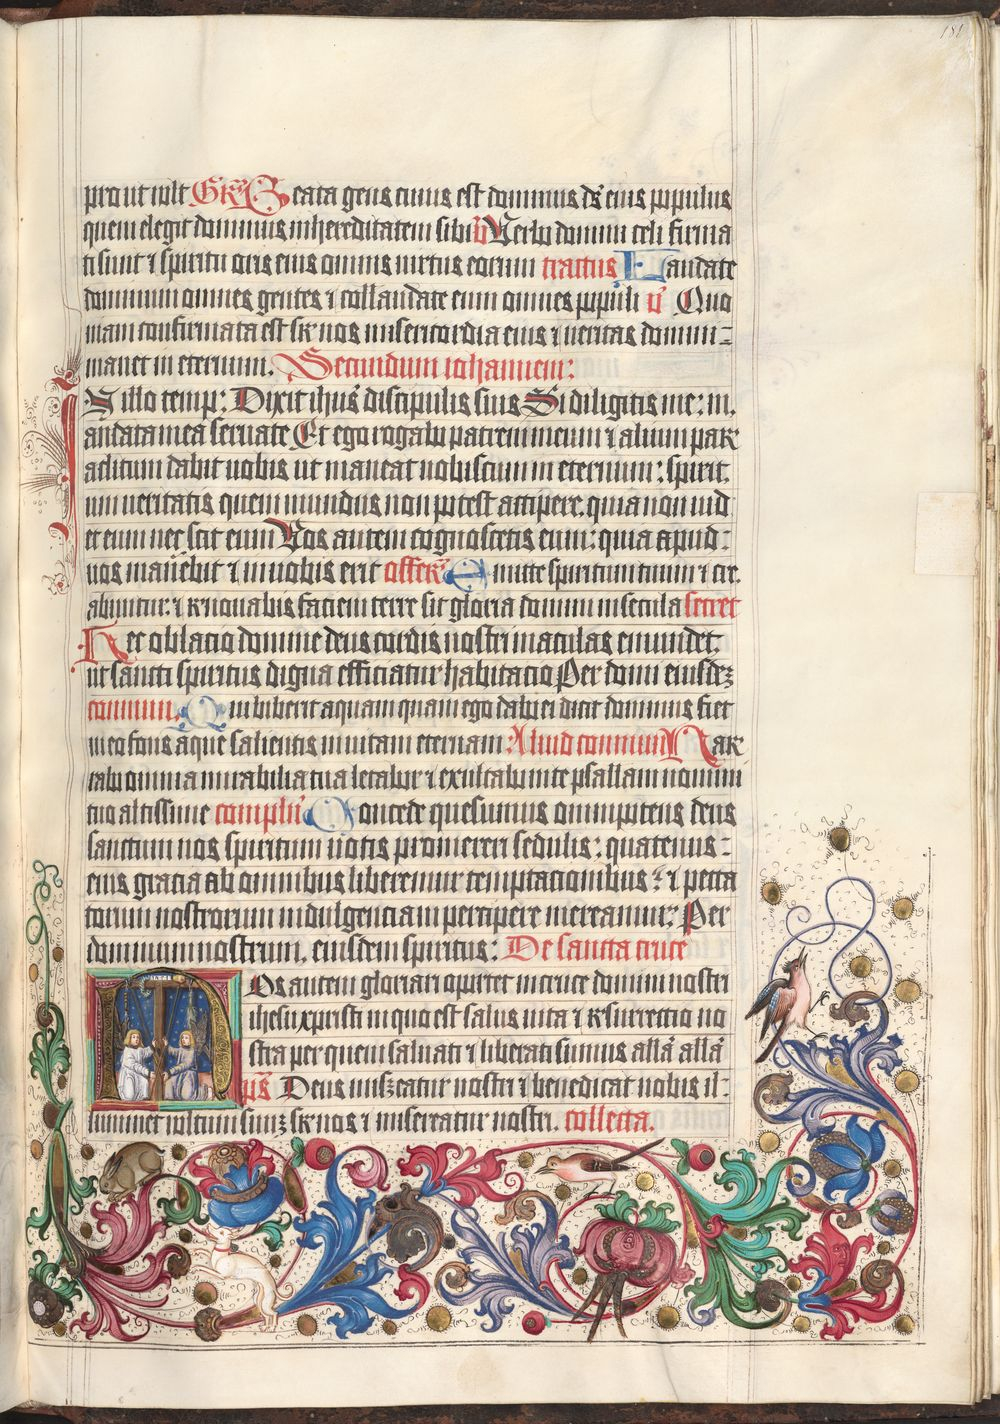 181
prout vult Gr̄ Beata gens cuius est dominus ds̄ eius populus
quem elegit dominus in hereditatem sibi v̄ Verbo domini celi firma
ti sunt ⁊ spiritu oris eius omnis virtus eorum tractus Laudate
dominum omnes gentes ⁊ collaudate eum omnes populi v̄ Quo
niam confirmata est sr̄ nos misericordia eius ⁊ veritas domini-
manet in eternum. Secundum iohannem:
In illo temp: Dixit ihūs discipulis suis Si diligitis me: m,
andata mea seruate Et ego rogabo patrem meum ⁊ alium par
aclitum dabit vobis ut maneat vobiscum in eternum: spirit,
um veritatis quem mundus non potest accipere. quia non vid
et eum nec scit eum Vos autem cognoscetis eum: quia apud:
vos manebit ⁊ in vobis erit offer̄ Emitte spiritum tuum ⁊ cre,
abuntur: ⁊ renouabis faciem terre sit gloria domini in secula secret
Hec oblacio domine deus cordis nostri maculas emundet.
ut sancti spiritus digna efficiatur habitacio Per domi eiusdeꝫ
commun, Qui biberit aquam quam ego dabo ei dicit dominus fiet
in eo fons aque salientis in vitam eternam Aliud commun Nar
rabo omnia mirabilia tua letabor ⁊ exultabo in te psallam nomini
tuo altissime complen̄ Concede quesumus omnipotens deus
sanctum nos spiritum votis promereri sedulis: quatenus:
eius gracia ab omnibus liberemur temptacionibus: ⁊ pecca
torum nostrorum indulgenciam percipere mereamur: Per
dominum nostrum, eiusdem spiritus: De sancta cruce
Nos autem gloriari oportet in cruce domini nostri
ihesu xpristi in quo est salus vita ⁊ resurrectio no
stra per quem saluati ⁊ liberati sumus allā allā
ps̄ Deus misereatur nostri ⁊ benedicat vobis il:
luminet vultum suuꝫ sr̄ nos ⁊ misereatur nostri. collecta.